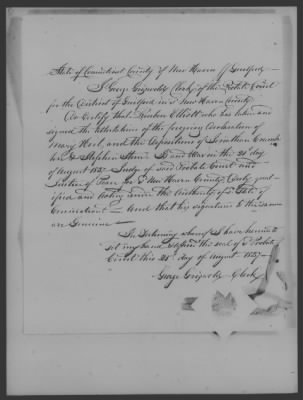 State of Connecticut County of New Haven Guilford
I George Griswold Clerk of the Probate Court
for the District of Guilford in s^d New Haven County
Do Certify that Reuben Elliott who has taken and
signed the attestations of the foregoing Declaration of
Mary and the Depositions of Jonathan
& Stephen was on the 21 day
of August 1837 Judge of said Probate Court and
Justice of Peace for s^d New Haven County Duly
and acting under the Authority of s^d State of
Connecticut — And that his signatures to the same
are Genuine —
In Testimony whereof I have hereunto
set my hand & affixed the seal of s^d Probate
Court this 21 day of August 1837 —
George Griswold Clerk